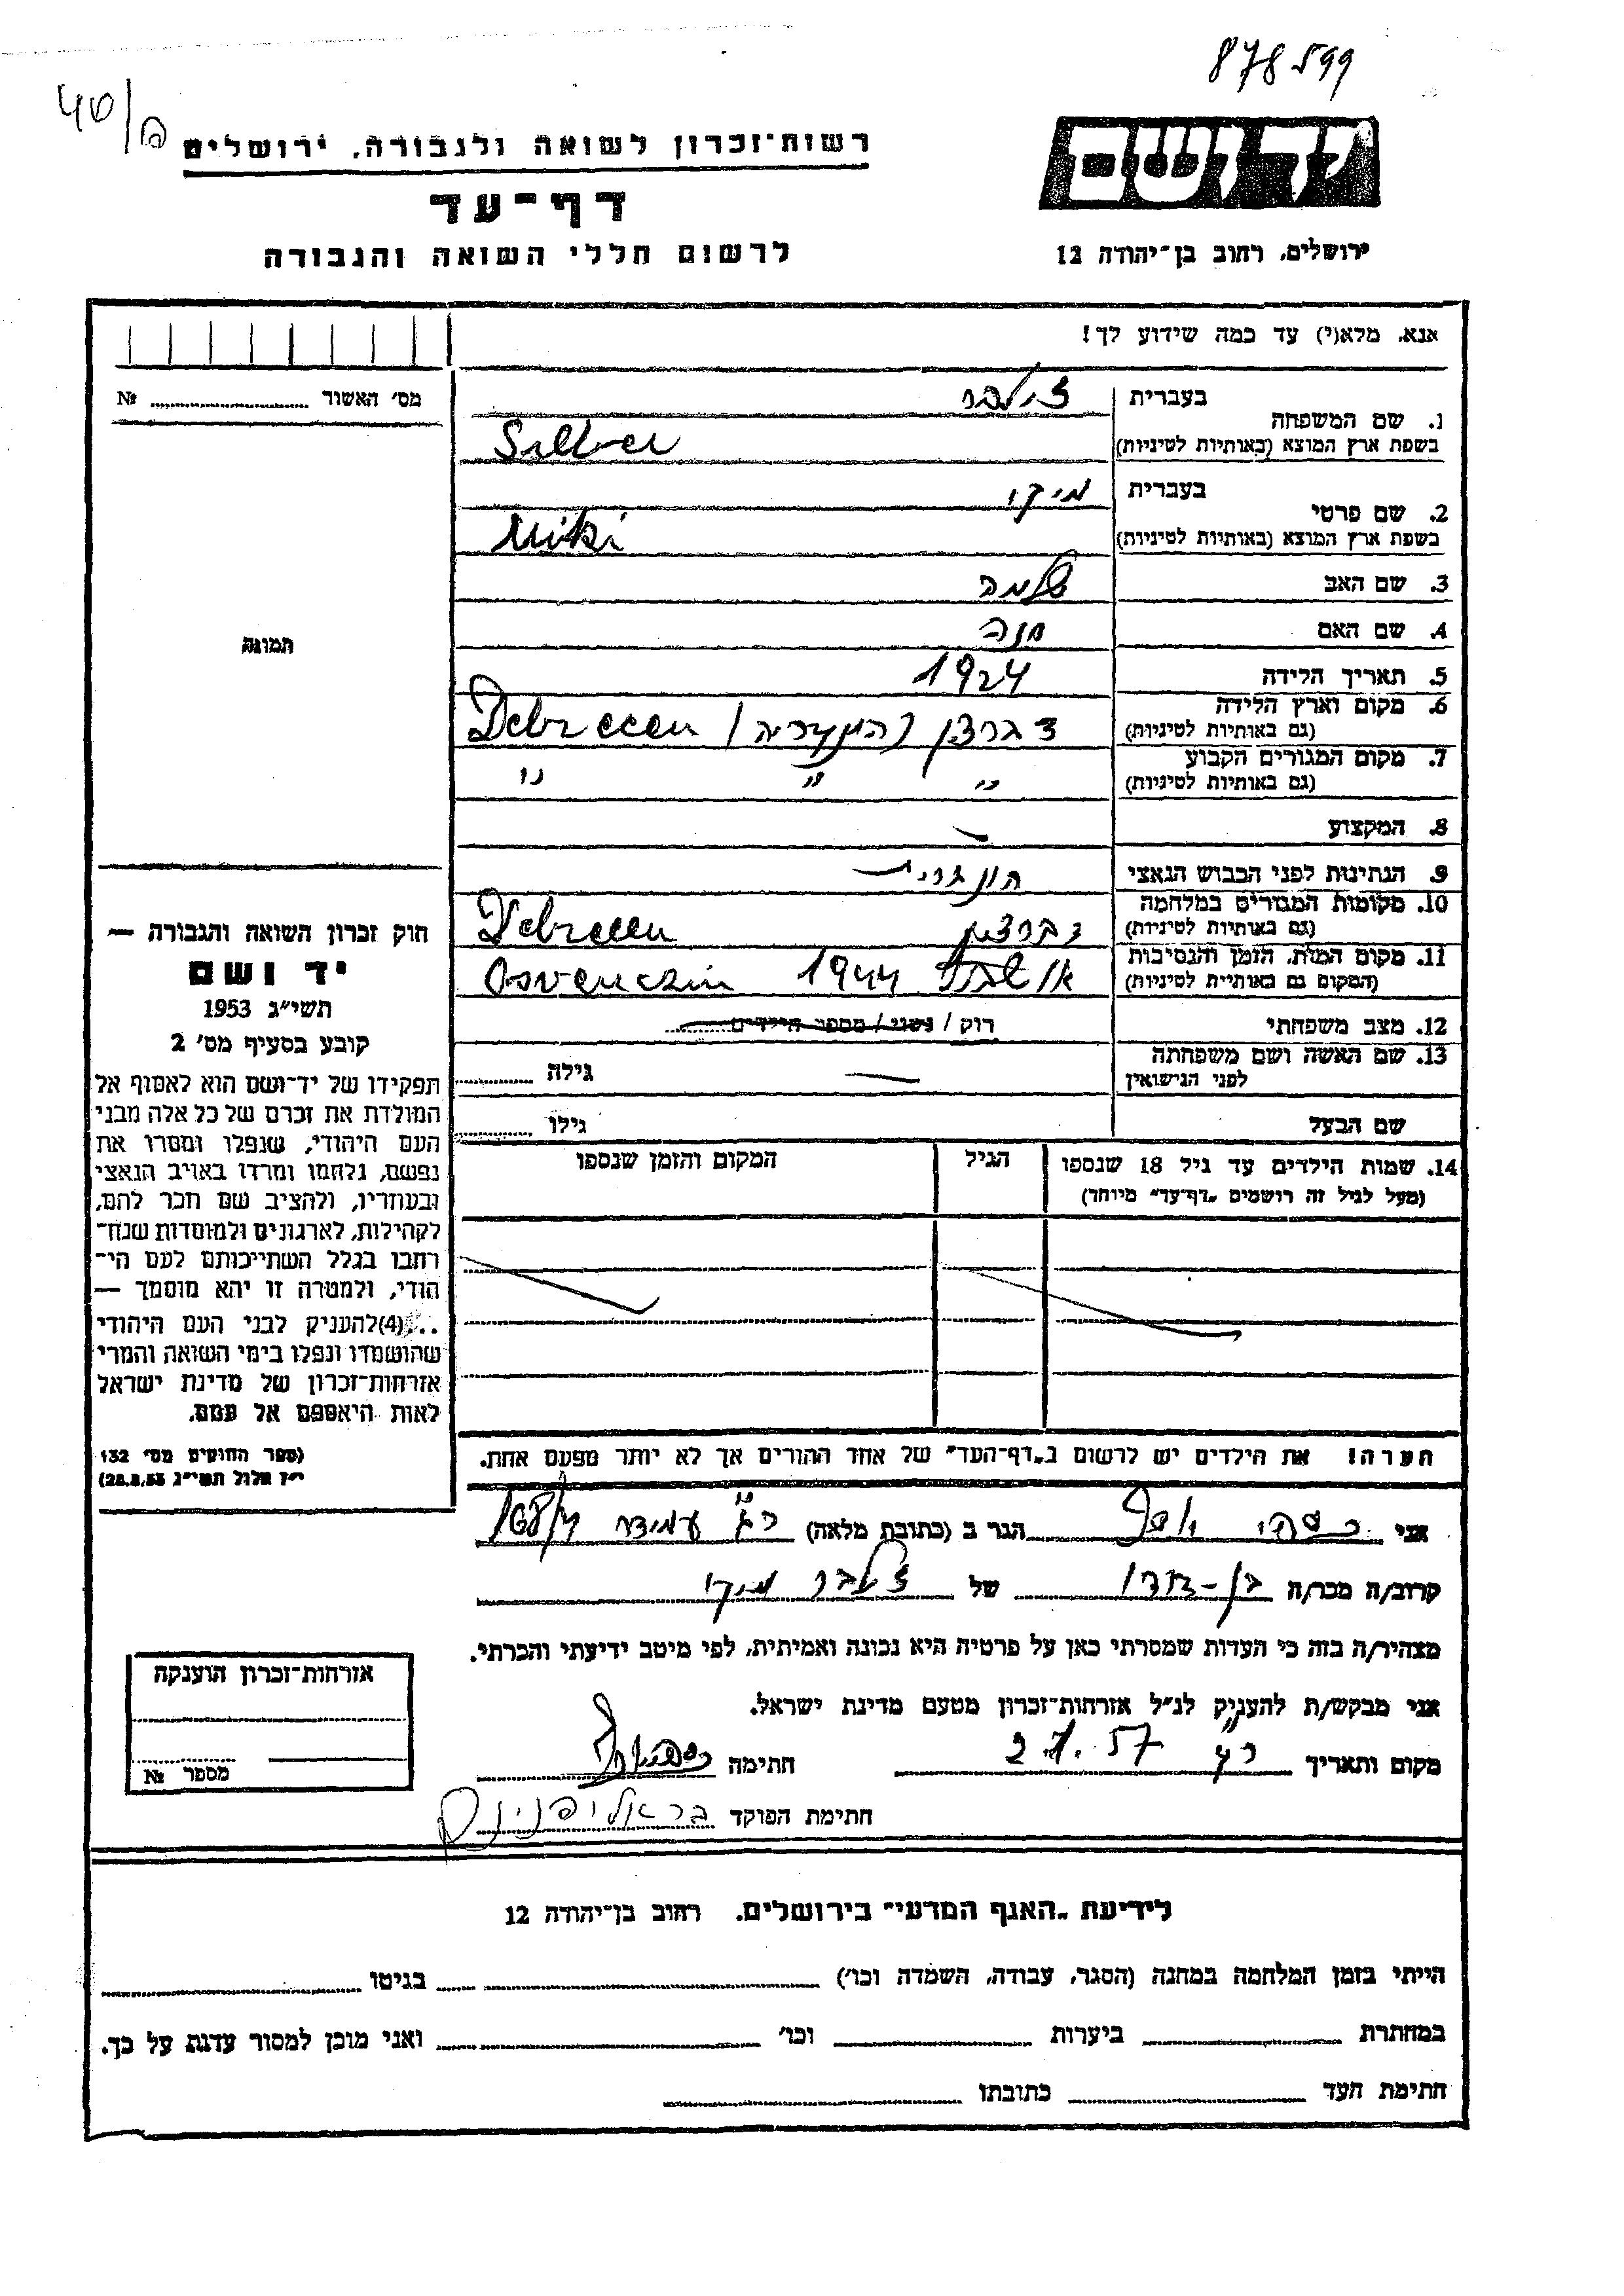 878599
40/פ
רשות־זכרון לשואה ולגבורה, ירושלים
יד ושם
דף־עד
לרשום חללי השואה והגבורה
ירושלים, רחוב בן־יהודה 12
אנא, מלא(י) עד כמה שידוע לך!
מס׳ האשור № ........
1. שם המשפחה בעברית זילבר
בשפת ארץ המוצא (באותיות לטיניות) Silber
2. שם פרטי בעברית מיקי
בשפת ארץ המוצא (באותיות לטיניות) Miki
3. שם האב שלמה
4. שם האם חנה
5. תאריך הלידה 1924
6. מקום וארץ הלידה (גם באותיות לטיניות) דברצן (הונגריה) Debrecen
7. מקום המגורים הקבוע (גם באותיות לטיניות) " " "
8. המקצוע —
9. הנתינות לפני הכבוש הנאצי הונגרית
10. מקומות המגורים במלחמה (גם באותיות לטיניות) דברצן Debrecen
11. מקום המות, הזמן והנסיבות (המקום גם באותיית לטיניות) 1944 Osvenczin
12. מצב משפחתי רוק / נשוי / מספר הילדים ........
13. שם האשה ושם משפחתה לפני הנישואין — גילה ........
שם הבעל גילו ........
14. שמות הילדים עד גיל 18 שנספו (מעל לגיל זה רושמים „דף־עד" מיוחד) הגיל המקום והזמן שנספו
תמונה
חוק זכרון השואה והגבורה —
יד ושם
תשי״ג 1953
קובע בסעיף מס׳ 2
תפקידו של יד־ושם הוא לאסוף אל
המולדת את זכרם של כל אלה מבני
העם היהודי, שנפלו ומסרו את
נפשם, נלחמו ומרדו באויב הנאצי
ובעוזריו, ולהציב שם וזכר להם,
לקהילות, לארגונים ולמוסדות שנח־
רבו בגלל השתייכותם לעם הי־
הודי, ולמטרה זו יהא מוסמך —
...(4) להעניק לבני העם היהודי
שהושמדו ונפלו בימי השואה והמרי
אזרחות־זכרון של מדינת ישראל
לאות היאספם אל עמם.
(ספר החוקים מס׳ 132
י״ז אלול תשי״ג 28.8.53)
הערה! את הילדים יש לרשום ב„דף־העד" של אחד ההורים אך לא יותר מפעם אחת.
אני יוסף הגר ב (כתובת מלאה) ר״ג עמידר 168/4
קרוב/ה מכר/ה בן-דודו של זילבר מיקי
מצהיר/ה בזה כי העדות שמסרתי כאן על פרטיה היא נכונה ואמיתית, לפי מיטב ידיעתי והכרתי.
אני מבקש/ת להעניק לנ״ל אזרחות־זכרון מטעם מדינת ישראל.
מקום ותאריך ר״ג 57 חתימה
חתימת הפוקד
אזרחות־זכרון הוענקה
מספר №
לידיעת „האגף המדעי" בירושלים, רחוב בן־יהודה 12
הייתי בזמן המלחמה במחנה (הסגר, עבודה, השמדה וכו׳) ........ בגיטו ........
במחתרת ........ ביערות ........ וכו׳ ........ ואני מוכן למסור עדות על כך.
חתימת העד ........ כתובתו ........